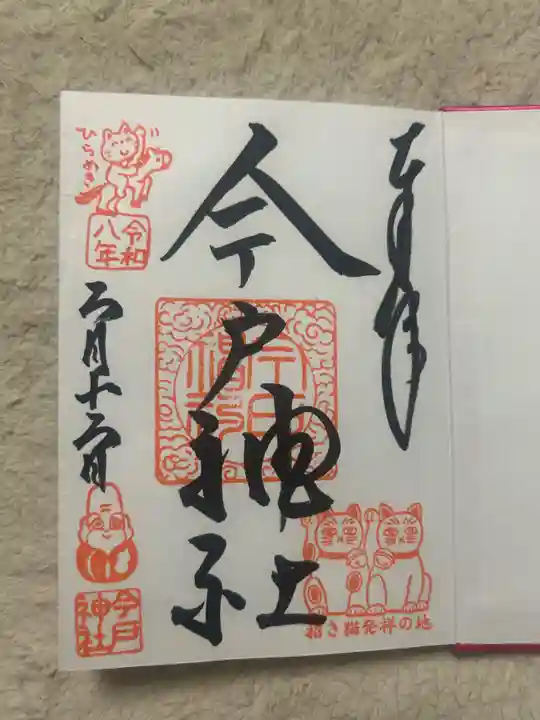 奉拝
今戸神社
今戸神社
招き猫発祥の地
ひらめき
令和
八年
二月十二日
今戸
神社